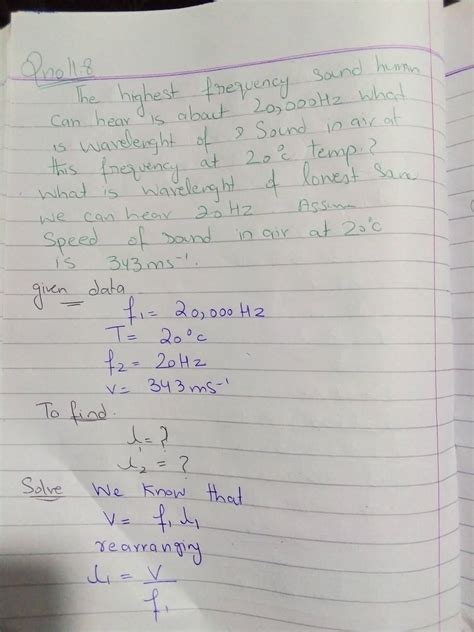 Qno 11.8
The highest frequency sound human
Can hear is about 20,000Hz what
is wavelenght of Sound in air at
this frequency at 20°c temp?
what is wavelenght of lowest
we can hear 20Hz Assum
Speed of sound in air at 20°C
is 343ms⁻¹.
given data
f₁ = 20,000 Hz
T = 20°c
f₂ = 20Hz
v = 343ms⁻¹
To find.
λ = ?
λ₂ = ?
Solve We know that
v = f₁ λ₁
rearranging
λ₁ = v
f₁